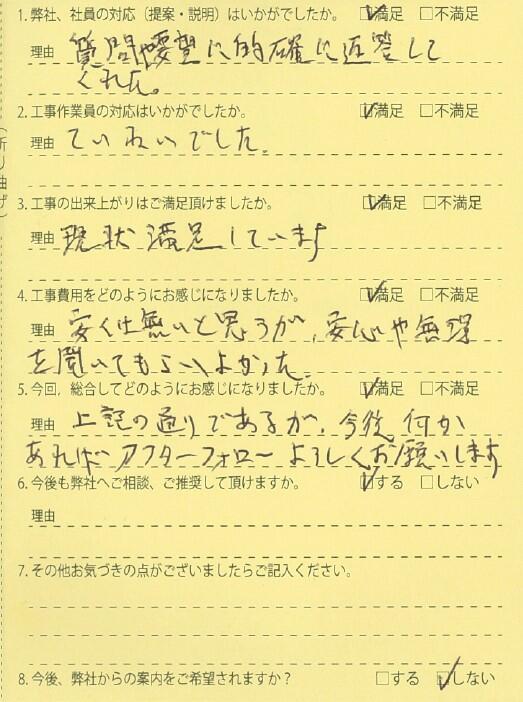 1. 弊社、社員の対応（提案・説明）はいかがでしたか。 ☑満足 □不満足
理由 質問や要望に的確に返答して
くれた。
2. 工事作業員の対応はいかがでしたか。 ☑満足 □不満足
理由 ていねいでした。
3. 工事の出来上がりはご満足頂けましたか。 ☑満足 □不満足
理由 現状満足しています
4. 工事費用をどのようにお感じになりましたか。 ☑満足 □不満足
理由 安くは無いと思うが、安心や無理
を聞いてもらいよかった。
5. 今回、総合してどのようにお感じになりましたか。 ☑満足 □不満足
理由 上記の通りであるが、今後何か
あればアフターフォローよろしくお願いします
6. 今後も弊社へご相談、ご推奨して頂けますか。 ☑する □しない
理由
7. その他お気づきの点がございましたらご記入ください。
8. 今後、弊社からの案内をご希望されますか？ □する ☑しない
（折り曲げ）